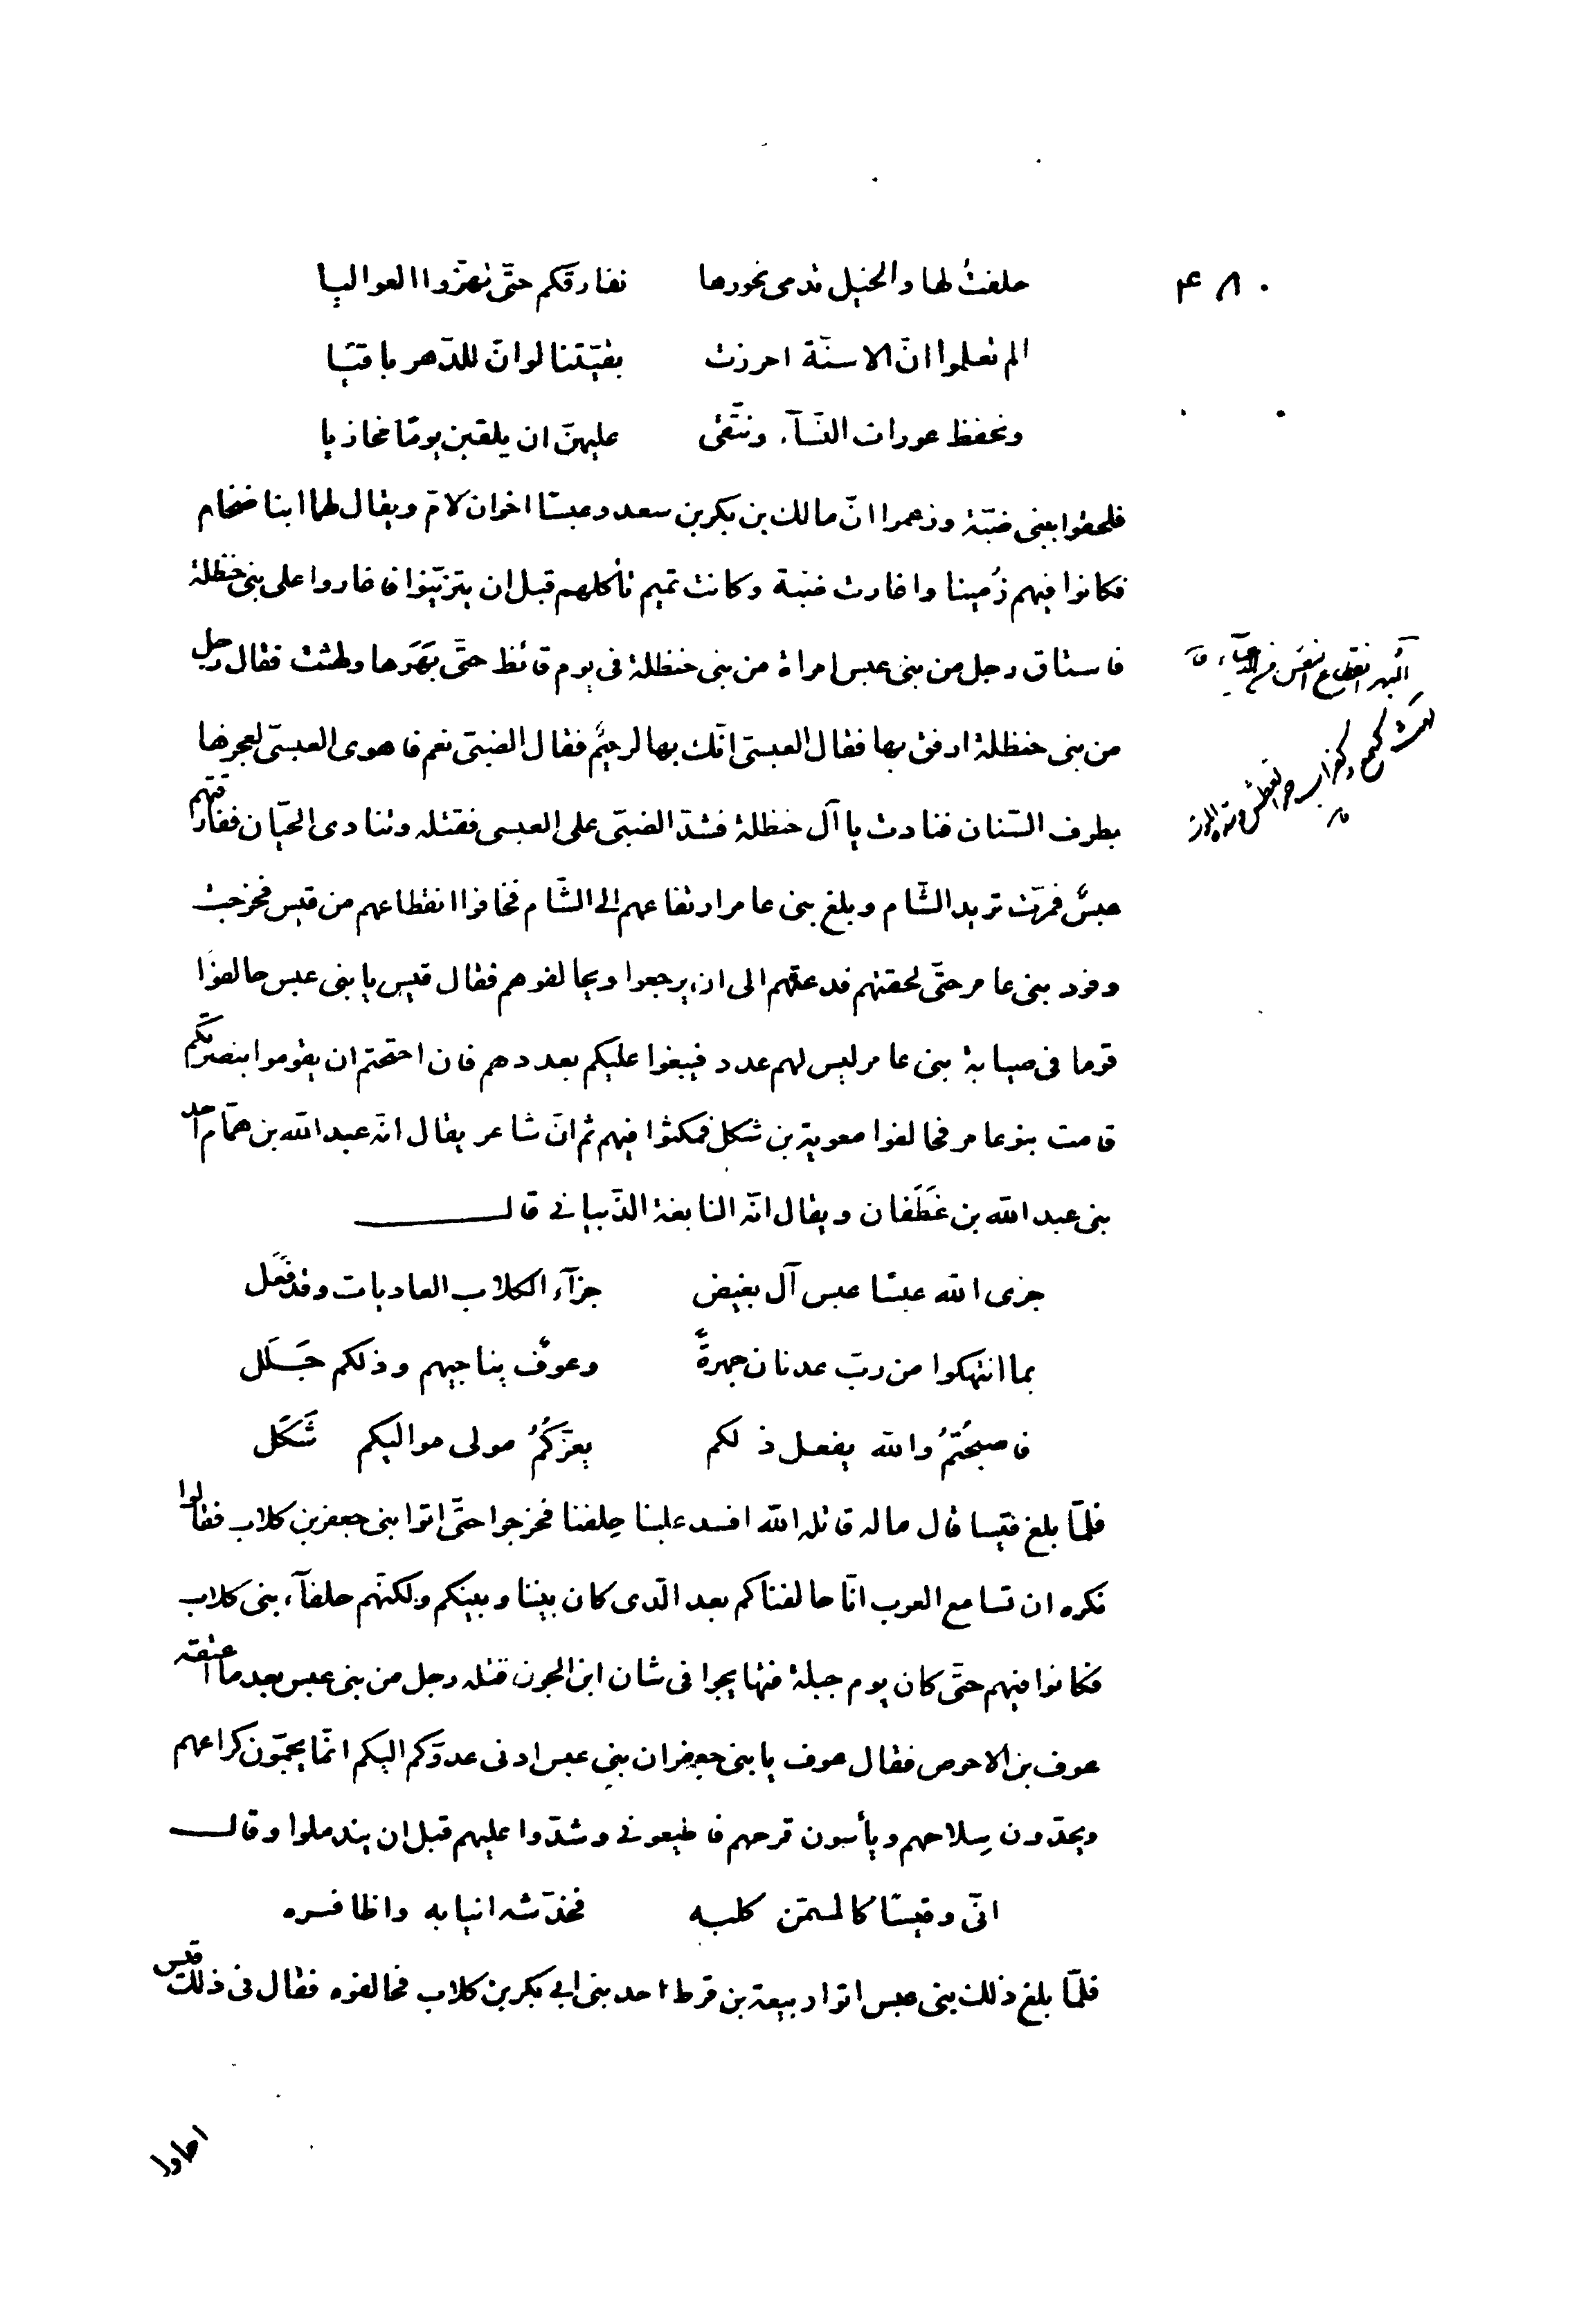 ٤٨٠
حلفتُ لها والخيل تدمى نحورها نفارقكم حتّى تهزّوا العواليا
الم تعلموا انّ الاسنّة احرزت بقيّتنا لو انّ للدّهر باقيّا
ونحفظ عورات النّسآء ونتّقى عليهنّ ان يلقين يومًا مخازيا
فلحقوا ببنى ضبّة وزعموا انّ مالك بن بكر بن سعد وعبسًا اخوان لامّ ويقال لهما ابنا ضخام
فكانوا فيهم زُمينا واغارت ضبة وكانت تميم تأكلهم قبل ان يترببّوا فاغاروا على بنى حنظلة
فاستاق رجل من بنى عبس امراة من بنى حنظلة فى يوم قائظ حتّى بَهَرَها ولهثت فقال رجل
من بنى حنظلة ارفق بها فقال العبسىّ انّك بها لرحيمٌ فقال الضبىّ نعم فاهوى العبسىّ لعجزها
بطرف السّنان فنادت يا آل حنظلة فشدّ الضبّى على العبسى فقتله وتنادى الحيّان ففارقتهم
عبسٌ فمرّت تريد الشّام وبلغ بنى عامر ارتفاعهم الى الشّام فخافوا انقطاعهم من قيس فخرجت
وفود بنى عامر حتّى لحقتهم فدعتهم الى ان يرجعوا ويحالفوهم فقال قيس يا بنى عبس حالفوا
قوما فى صيابة بنى عامر ليس لهم عدد فيبغوا عليكم بعددهم فان احتجتم ان يقوموا بنصرتكم
قامت بنو عامر فحالفوا معوية بن شكل فمكثوا فيهم ثم انّ شاعر يقال انّه عبد الله بن همّام احد
بنى عبد الله بن غَطَفان ويقال انّه النابغة الذّبيانى قال
جزى الله عبسًا عبس آل بغيض جزآء الكلاب العاديات وقد فَعَل
بما انتهكوا من ربّ عدنان جهرةً وعوفٌ يناجيهم وذلكم جَلَل
فاصبحتُمُ والله يفعل ذلكم يعزّكُمُ مولى مواليكم شَكَل
فلمّا بلغ قيسا قال ماله قاتله الله افسد علينا حِلفنا فخرجوا حتّى اتوا بنى جعفر بن كلاب فقالوا
نكره ان تسامع العرب انّا حالفناكم بعد الّذى كان بيننا وبينكم ولكنّهم حلفآء بنى كلاب
فكانوا فيهم حتّى كان يوم جبلة فتهايجوا فى شان ابن الجون قتله رجل من بنى عبس بعد ما اعتقه
عوف بن الاحوص فقال عوف يا بنى جعفر ان بنى عبس ادنى عدوّكم اليكم انّما يجمّون كراعهم
ويحدّون سِلاحهم ويأسون قرحهم فاطيعونى وشدّوا عليهم قبل ان يندملوا وقال
انّى وقيسًا كالمسمّن كلبه فخدّشه انيابه واظافره
فلمّا بلغ ذلك بنى عبس اتوا ربيعة بن قرط احد بنى ابى بكر بن كلاب فحالفوه فقال فى ذلك قيس
البهر انقطاع النفس من الاعياء ق
لهث كمنع
احاول